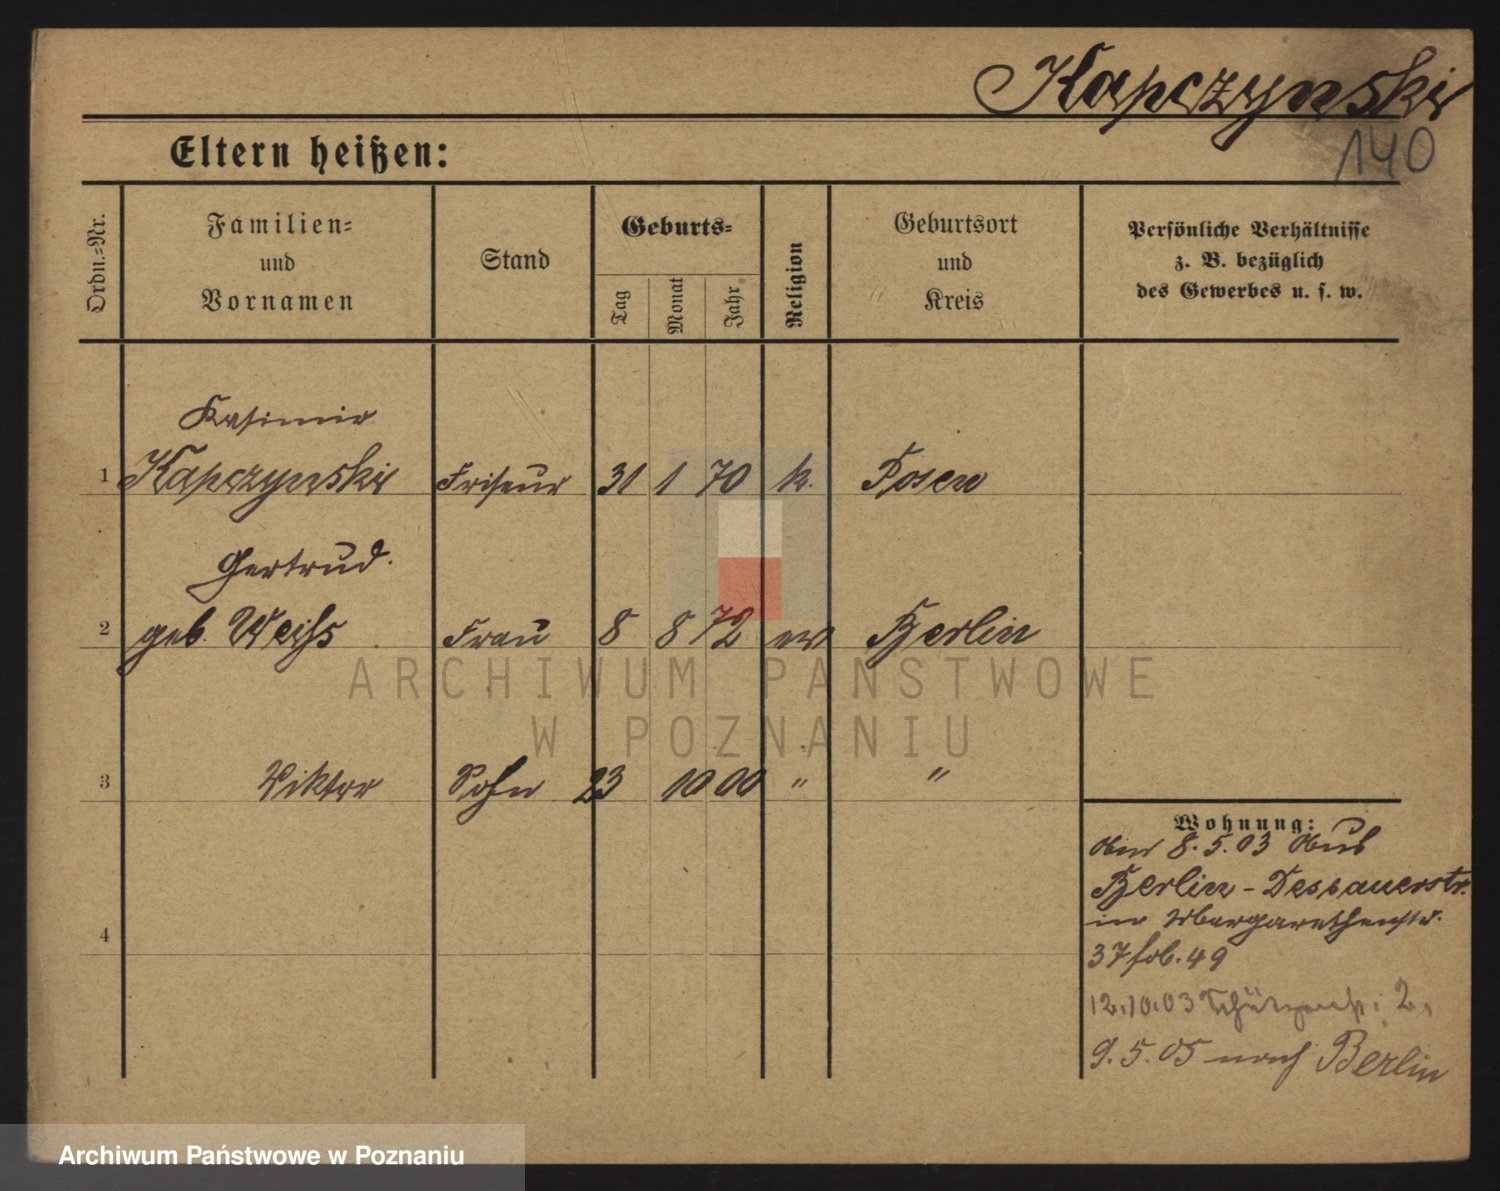 Kapczynski
140
Eltern heißen:
Ordn.-Nr.
Familien-
und
Vornamen
Stand
Geburts-
Tag
Monat
Jahr
Religion
Geburtsort
und
Kreis
Persönliche Verhältnisse
z. B. bezüglich
des Gewerbes u. s. w.
Kasimir
1 Kapczynski Friseur 31 1 70 k. Posen
Gertrud.
2 geb. Weihs Frau 8 8 72 ev Berlin
3 Viktor Sohn 23 10 00 " "
4
Wohnung:
8.5.03
Berlin - Dessauerstr.
in Margarethenstr.
37 49
12.10.03 Schützenstr. 2,
9.5.05 nach Berlin
ARCHIWUM PAŃSTWOWE
W POZNANIU
Archiwum Państwowe w Poznaniu